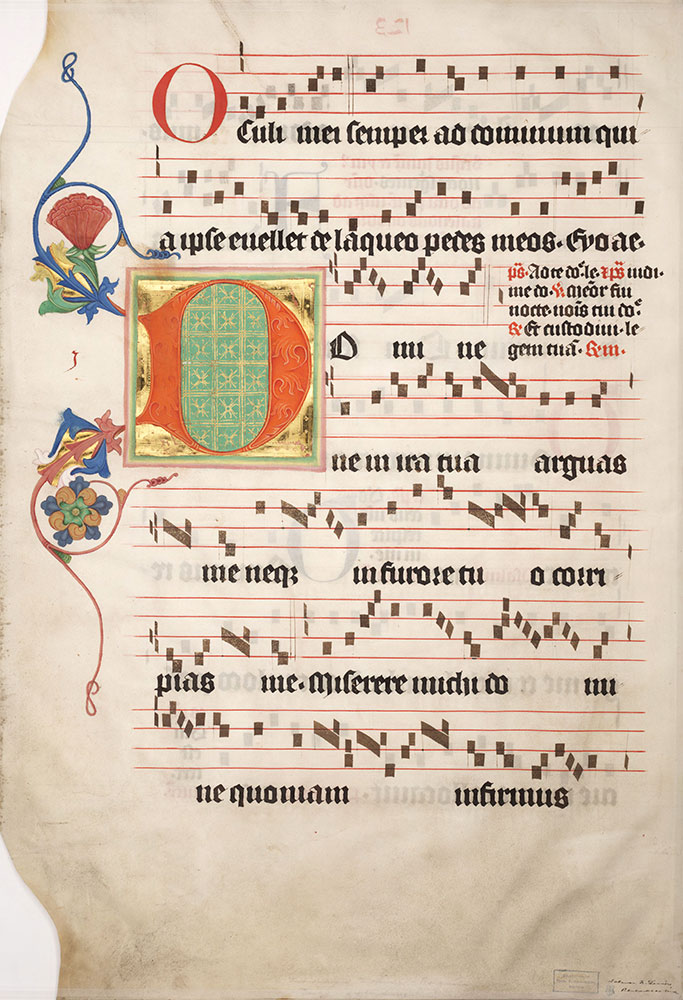 Oculi mei semper ad dominum qui
a ipse evellet de laqueo pedes meos. Evo ae.
p̄s. Ad te do᷎. le. xp̄s iudi
me do. V. Meōr fui
nocte nois tui do᷎
R Et custodiui le
gem tuā. R. m.
Domine
ne in ira tua arguas
me neqꝫ in furore tuo corri
pias me. Miserere michi domi
ne quoniam infirmus